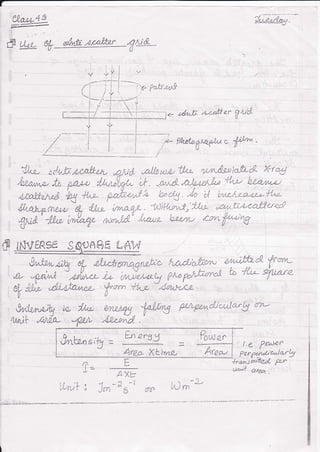 Class 49
Tuesday.
Use of anti scatter grid
← Patient
← anti scatter grid
← Photographic film.
The anti scatter grid allows the undeviated X-ray
beams to pass through it. and absorbs the beams
scattered by the patient's body so it increases the
sharpness of the image. Without, the antiscattered
grid the image would have been confusing
INVERSE SQUARE LAW
Intensity of electromagnetic radiation emitted from
a point source is inversely proportional to the square
of the distance from the source
Intensity is the energy falling perpendicularly on
unit area per second.
Intensity = Energy / Area X time = Power / Area
i.e power
perpendicularly
transmitted per
unit area.
I = E / A×t
Unit : Jm⁻²s⁻¹ or Wm⁻²